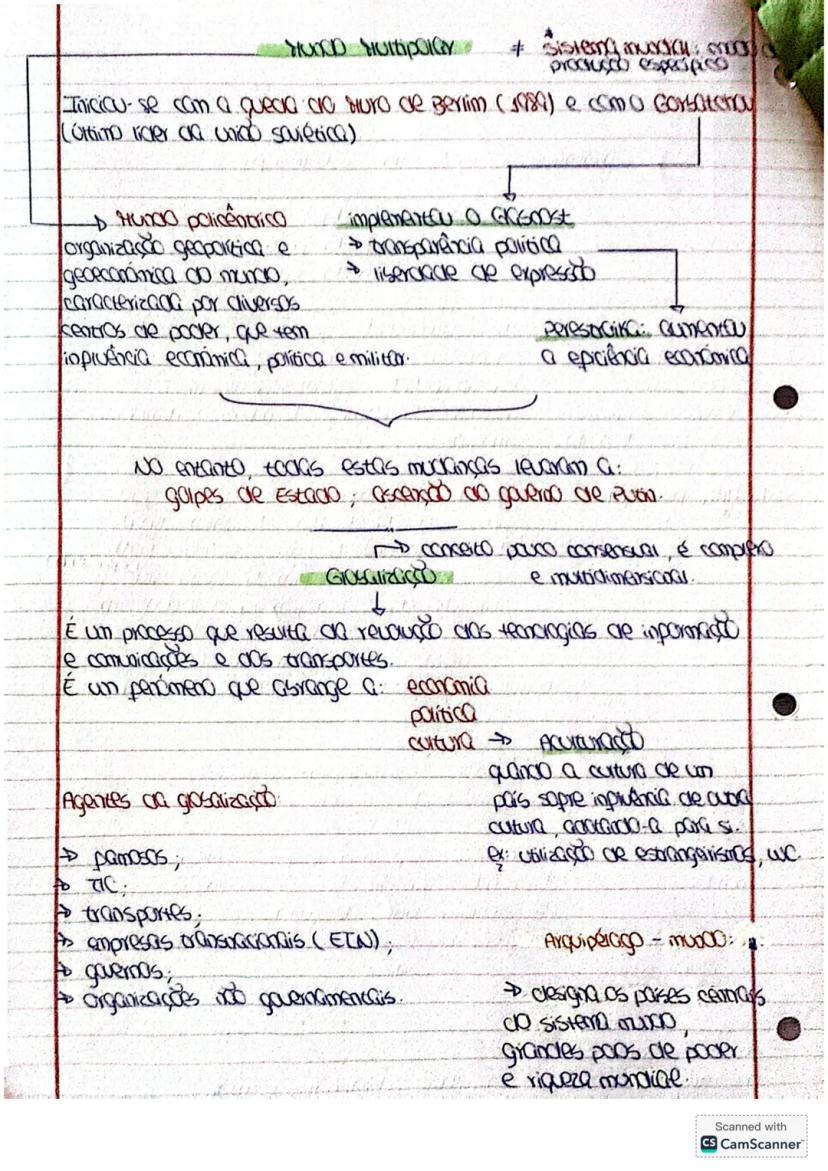 Mundo Multipolar + * Sistema mundial: modo
produção específico
Iniciou-se com a queda do Muro de Berlim (1989) e com o Gorbatchov
(último líder da união soviética)
→ Mundo policêntrico
organização geopolítica e
geoeconómica do mundo,
caracterizada por diversos
centros de poder, que tem
influência económica, política e militar.
implementou o Glasnost
→ transparência política
→ liberdade de expressão
Perestroika: aumentou
a eficiência económica
No entanto, todas estas mudanças levaram a:
golpes de Estado; ascenção do governo de Putin.
→ conceito pouco consensual, é complexo
e multidimensional.
Globalização
É um processo que resulta da revolução das tecnologias de informação
e comunicações e dos transportes.
É um fenómeno que abrange a: economia
política
cultura → Aculturação
quando a cultura de um
país sofre influência de outra
cultura, adotando-a para si.
ex: utilização de estrangeirismos, WC
Agentes da globalização:
→ famosos;
→ TIC;
→ transportes;
→ empresas transnacionais (ETN);
→ governos;
→ organizações não governamentais.
Arquipélago - mundo:
→ designa os países centrais
do sistema mundo,
grandes polos de poder
e riqueza mundial.
Scanned with
CS CamScanner